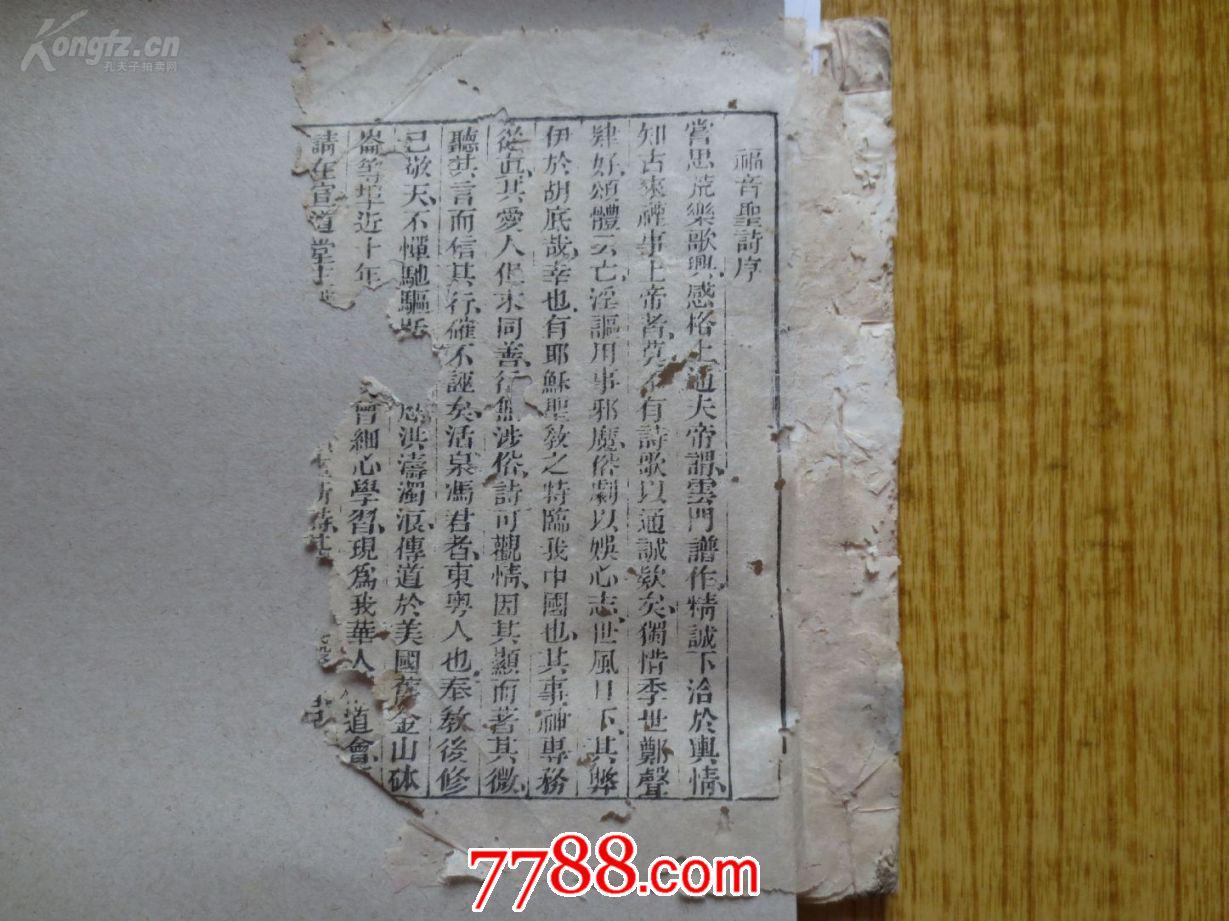 福音聖詩序
嘗思蕘樂歌興感格上通夫帝謂雲門譜作精誠下洽於輿情
知古來禋事上帝者莫不有詩歌以通誠欵矣獨惜季世鄭聲
肆好頌體云亡淫謳用事邪魔俗劇以娛心志世風日下其弊
伊於胡底哉幸也有耶穌聖教之特臨我中國也其事神專務
從真其愛人俱求同善行無涉俗詩可觀情因其顯而著其微
聽其言而信其行確不誣矣活泉馮君者東粵人也奉教後修
己敬天不憚馳驅 洪濤濁浪傳道於美國舊金山砵
崙等埠近十年 曾細心學習現爲我華人 道會
請在宣道堂
Kongfz.cn
孔夫子拍卖网
7788.com